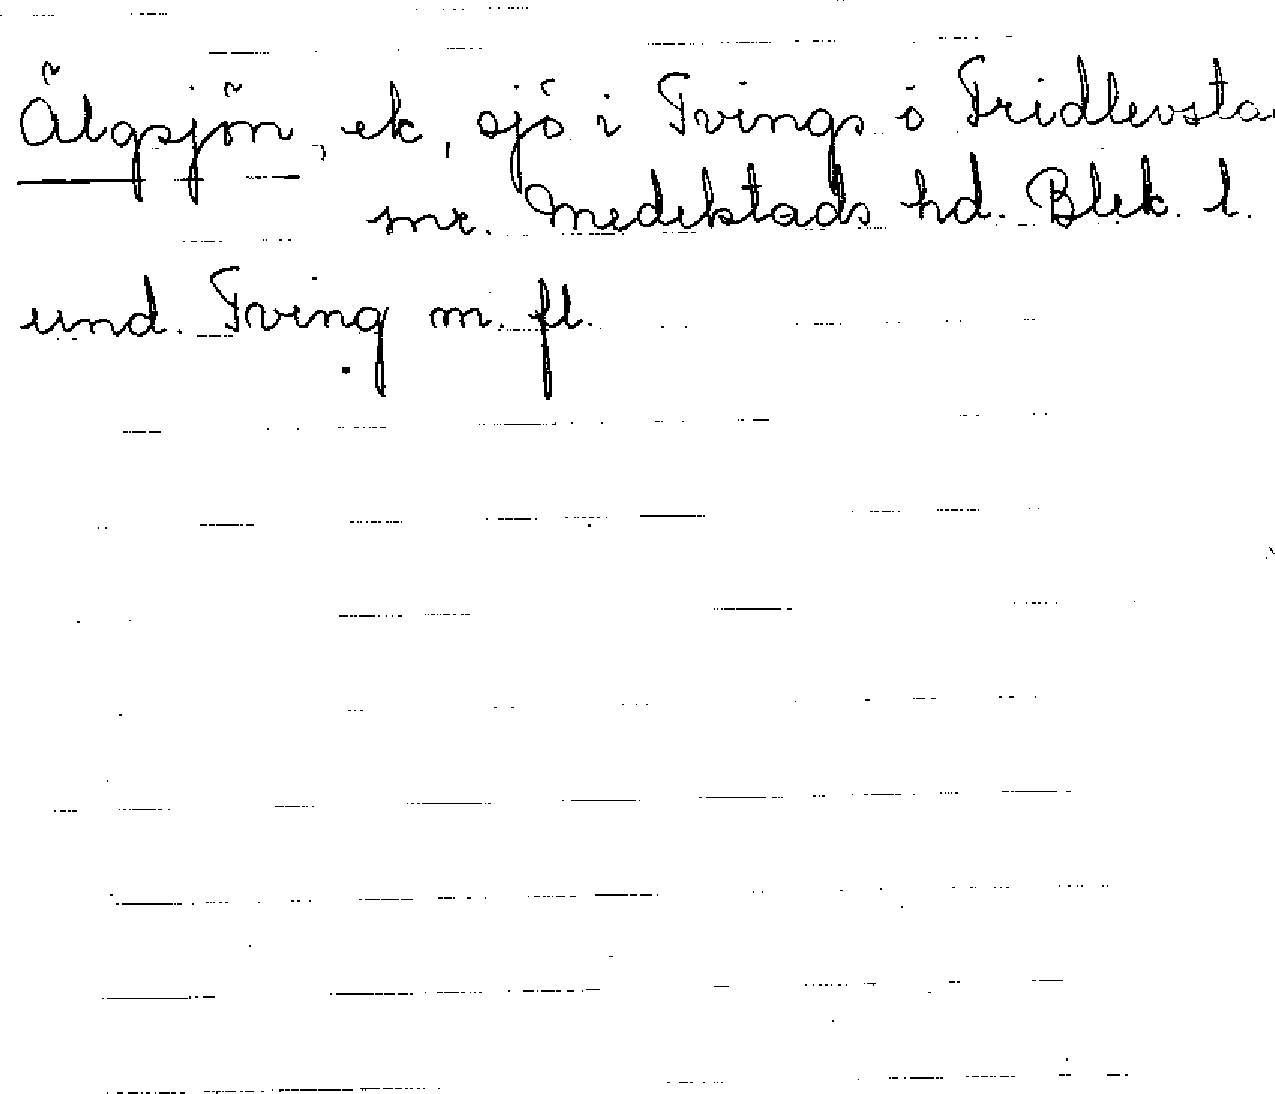 Älgsjön, ek, sjö i Tvings o Fridlevsta
snr. Medelstads hd. Blek. l.
und. Tving m. fl.